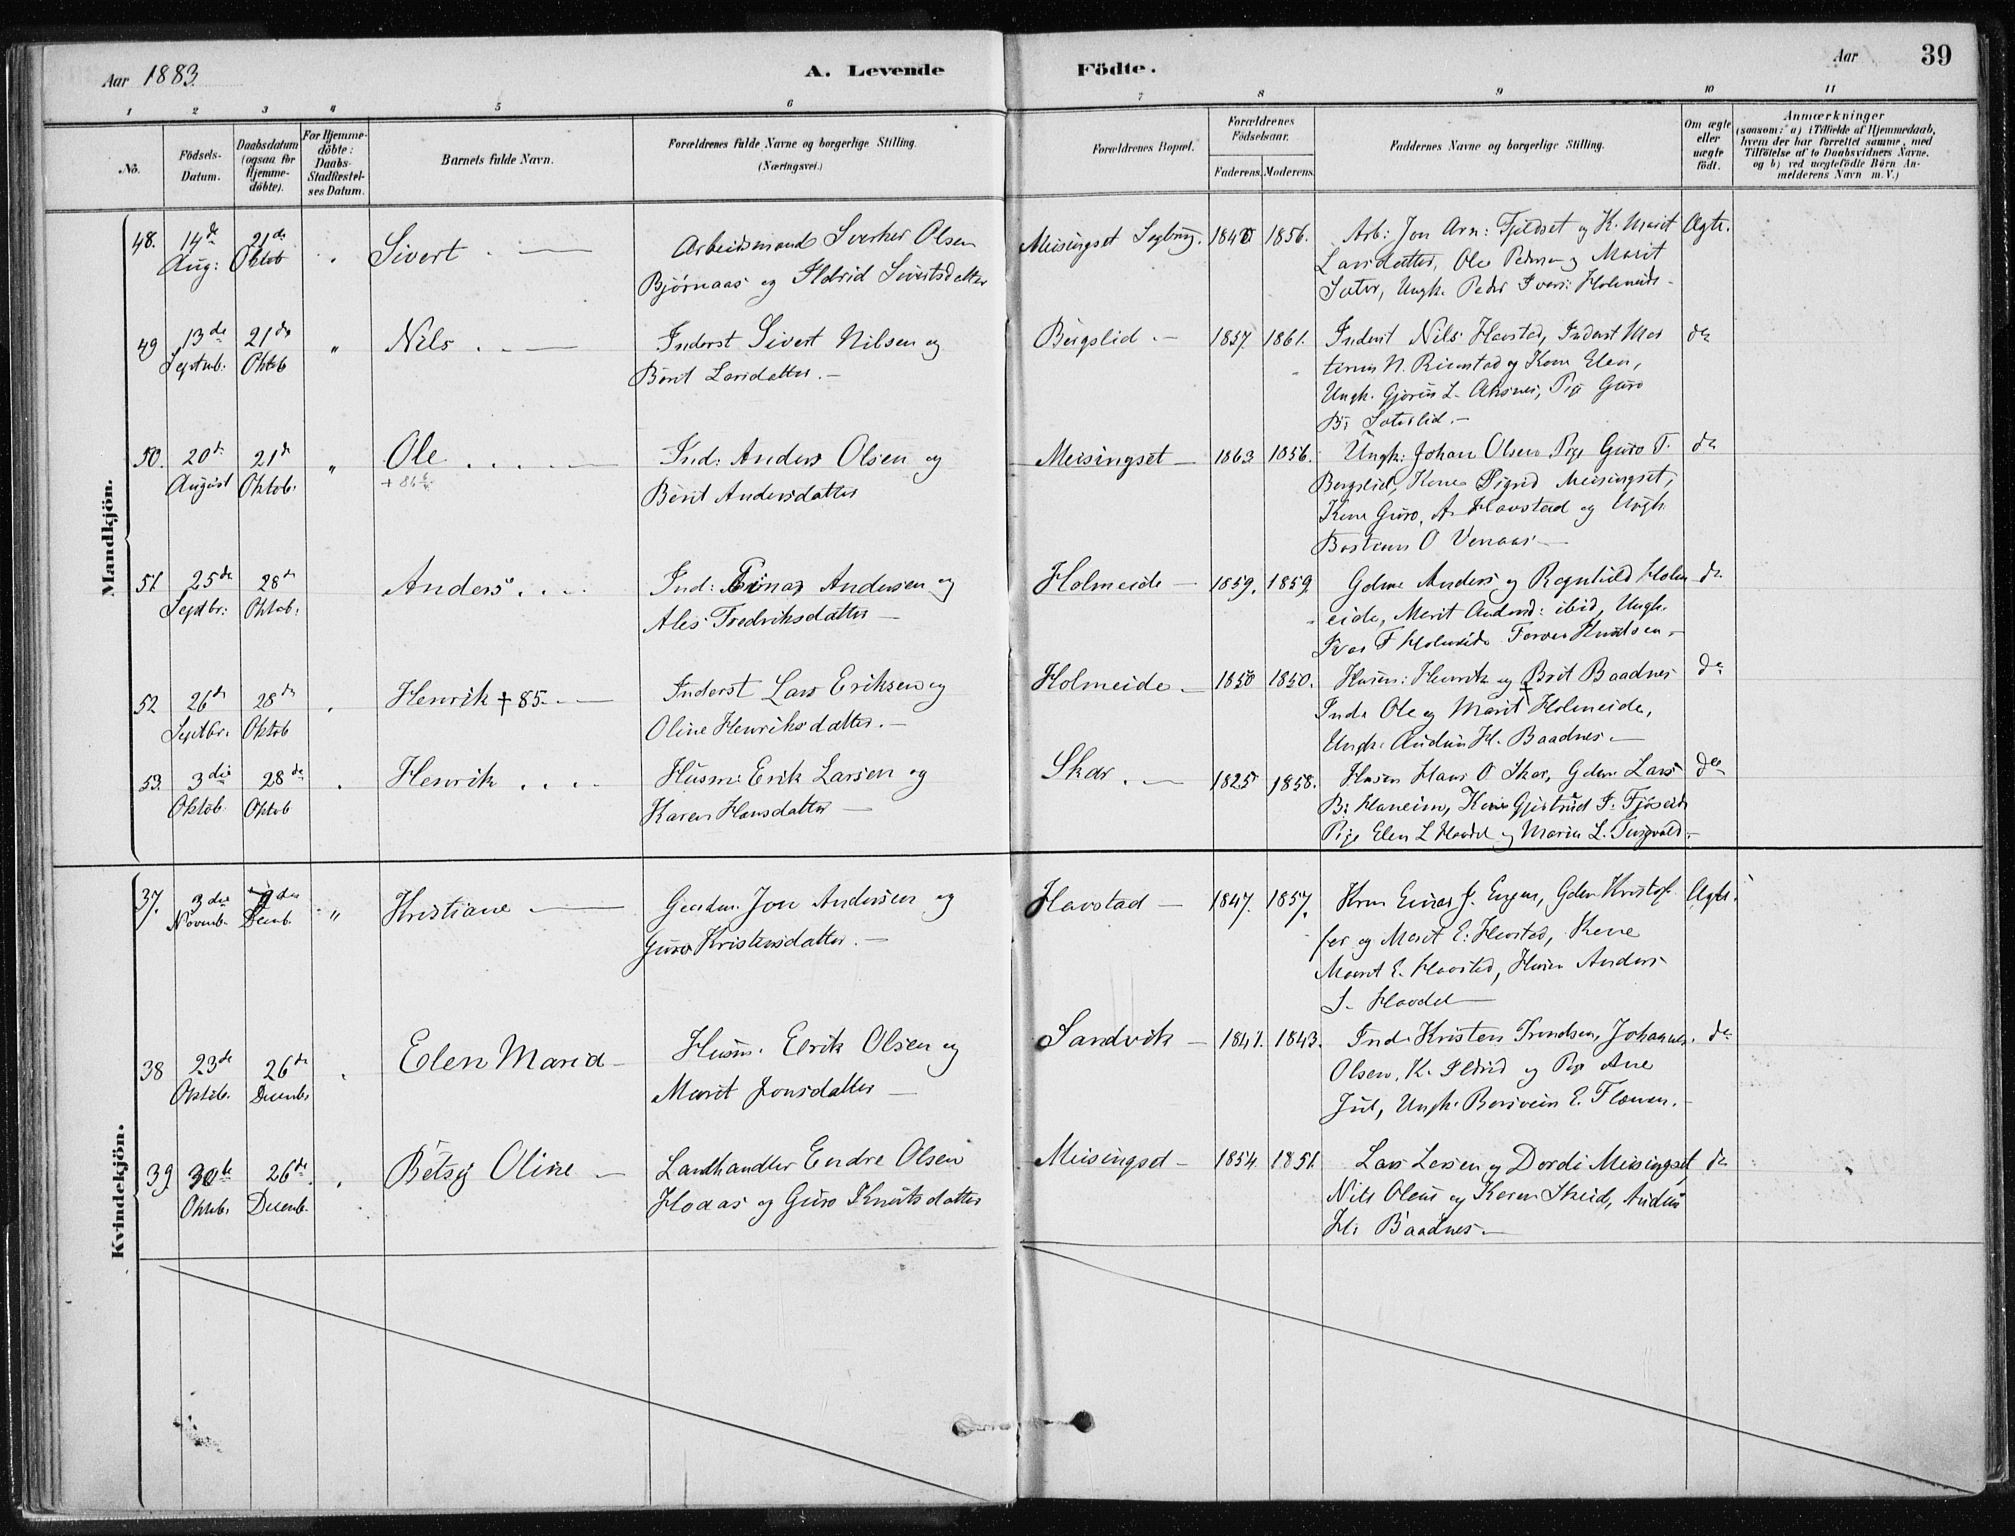 Aar 1883.
A. Levende Födte.
Aar 39
1 2 3 4 5 6 7 8 9 10 11
No.
Födsels-Datum.
Daabsdatum (ogsaa for Hjemme-döbte).
For Hjemme-döbte: Daabs-Stadfæstel-ses Datum.
Barnets fulde Navn.
Forældrenes fulde Navne og borgerlige Stilling.
(Næringsvei.)
Forældrenes Bopæl.
Forældrenes Födselsaar.
Faderens. Moderens.
Faddernes Navne og borgerlige Stilling.
Om ægte eller uægte födt.
Anmærkninger
(saasom: a) i Tilfælde af Hjemmedaab,
hvem der har forrettet samme, med
Tilföielse af to Daabsvidners Navne,
og b) ved uægtefödte Börn An-
melderens Navn m. V.)
Mandkjön.
48. 14de Aug: 21de Oktob Sivert
Arbeidsmand Sverker Olsen
Bjørnaas og Ildrid Sivertsdatter
Meisingset Sagbrug. 1840 1856.
Arb: Jon Arn: Fjeldset og K. Marit
Larsdatter, Ole Peders og Marit
Sæter, Ungk. Peder Ivers: Holmeide
Ægte.
49 13de Septemb: 21de Oktob " Nils
Inderst Sivert Nilsen og
Berit Larsdatter.
Bergslid 1857. 1861.
Inderst Nils Havstad, Inderst Mor
N. og Kone Elen,
Ungk. L. Aksnes, Pige Guro
B: Sæterlid.
do
50. 20de August 21de Oktob. " Ole
+ 86
Ind: Anders Olsen og
Berit Andersdatter
Meisingset 1863 1856.
Ungk: Johan Olsen Pige Guro T.
Bergslid, Kone Sigrid Meisingset,
Kone Guro. A. Havstad og Ungk.
Bastian O Venaas
do
51. 25de Septbr: 28de Oktob. Anders
Ind: Einar Andersen og
Ales Fredriksdatter
Holmeide 1859. 1859.
Gdm Anders og Ragnhild Holm
eide, Marit Andersd: ibid, Ungk.
Ivar F Holmeide Knudsen.
do
52 26de Septbr. 28de Oktob Henrik + 85.
Inderst Lars Eriksen og
Oline Henriksdatter.
Holmeide 1850 1850.
Husm: Henrik og Brit Baadnes
Inds Ole og Marit + Holmeide,
Ungk. Audun H. Baadnes.
do
53. 3die Oktob. 28de Oktob Henrik
Husm: Erik Larsen og
Karen Hansdatter
Skar. 1825 1858.
Husm Hans O Skar, Gdm Lars
B: Haneim, Kone Gjertrud J. Fjøseid
Pige Elen L Havdal og Maren L. Tungvold.
do
Kvindekjön.
37. 3die Novemb. Decemb. " Kristiane
Gaardm. Jon Andersen og
Guro Kristensdatter.
Havstad 1847. 1857.
Husm Einar J. Engen, Gdm Kristof
fer og Marit E: Havstad, Kone
Marit E. Havstad, Husm Anders
S. Havdal
Ægte.
38 23de Oktob. 26de Decemb. Elen Maria
Husm. Erik Olsen og
Marit Jonsdatter
Sandvik 1841. 1843.
Ind. Kristen Trondsen, Johannes
Olsen, K. Ildrid og Pige Ane
Jul, Ungk. E.
do
39 30te Oktob. 26de Decemb. Betsy Oline
Landhandler Endre Olsen
Hodas og Guro Knutsdatter
Meisingset 1854. 1851.
Lars Larsen og Dordi Meisingset,
Nils Olens og Karen Skeid, Audun
H: Baadnes
do